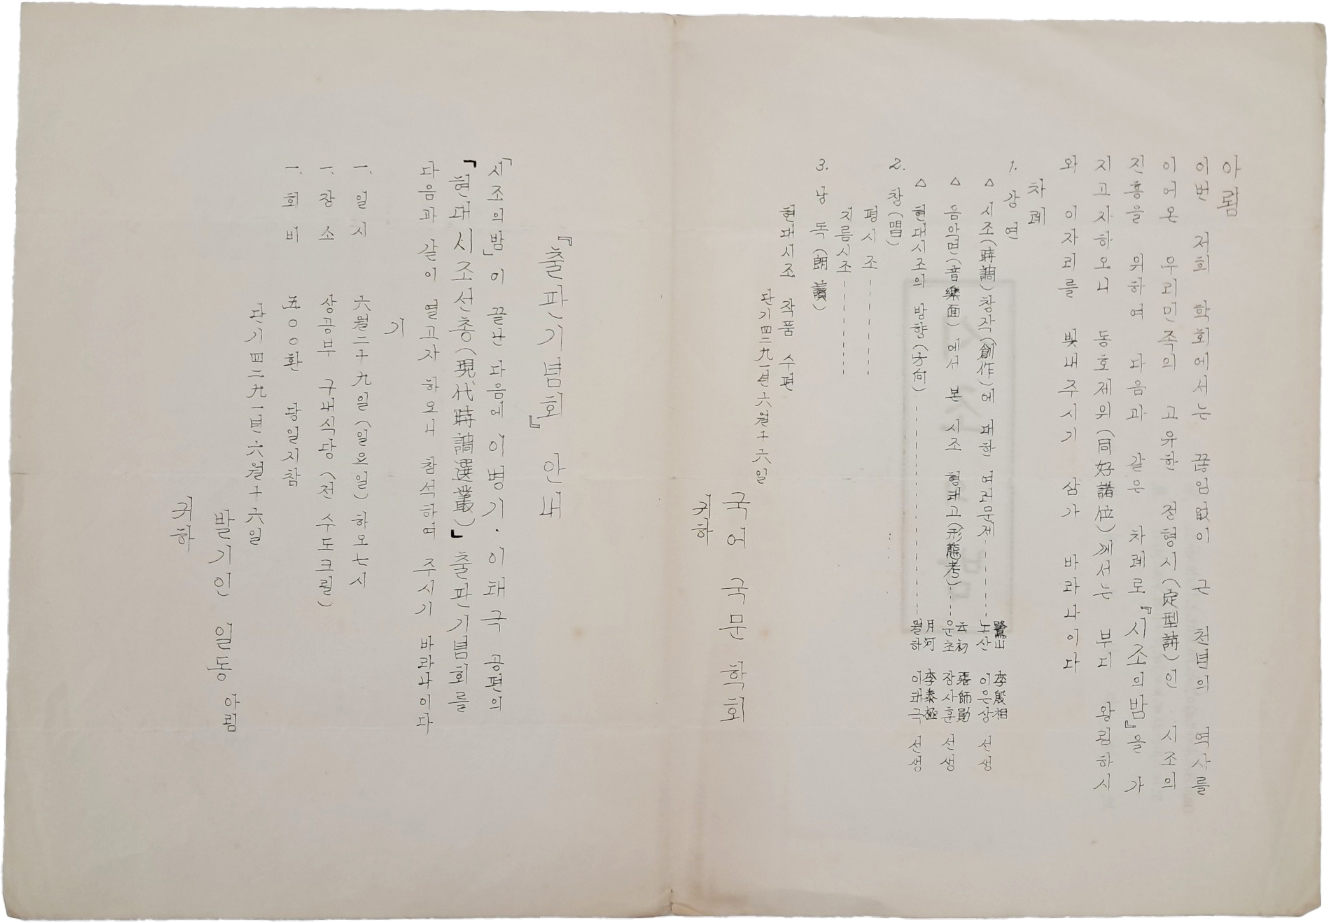 아룀
이번 저희 학회에서는 끊임없이 근 천년의 역사를
이어온 우리민족의 고유한 정형시(定型詩)인 시조의
진흥을 위하여 다음과 같은 차례로 『시조의밤』을 가
지고자하오니 동호제위(同好諸位)께서는 부디 왕림하시
와 이자리를 빛내주시기 삼가 바라나이다
차례
1. 강연
△ 시조(時調)창작(創作)에 대한 여러문제 ------ 노산 鷺山 이은상 李殷相 선생
△ 음악면(音樂面)에서 본 시조 형태고(形態考) ---- 운초 云初 장사훈 張師勛 선생
△ 현대시조의 방향(方向) ---------------- 월하 月河 이태극 李泰極 선생
2. 창(唱)
평시조 --------
지름시조 --------
3. 낭독(朗讀)
현대시조 작품 수편
단기四二九一년六월十六일
국어 국문 학회
귀하
『출판기념회』 안내
「시조의밤」이 끝난 다음에 이병기·이태극 공편의
『현대시조선총(現代時調選叢)』 출판기념회를
다음과 같이 열고자 하오니 참석하여 주시기 바라나이다
기
一. 일시 六월二十九일(일요일) 하오七시
一. 장소 상공부 구내식당(전 수도크릴)
一. 회비 五〇〇환 당일지참
단기四二九一년六월十六일
발기인 일동 아룀
귀하